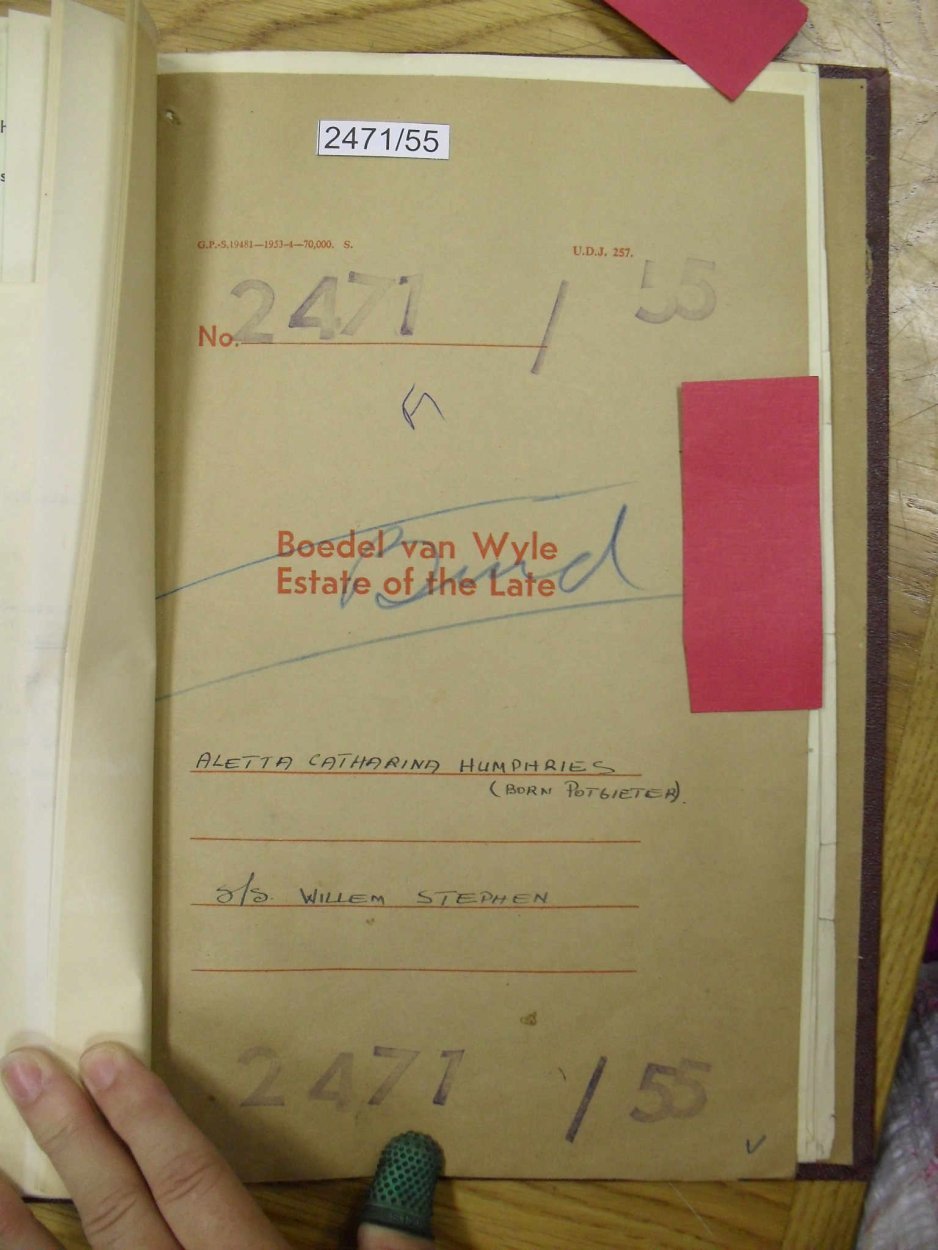 2471/55
G.P.-S.19481—1953-4—70,000. S. U.D.J. 257.
No. 2471 / 55
Boedel van Wyle
Estate of the Late
ALETTA CATHARINA HUMPHRIES
(BORN POTGIETER).
S/S. WILLEM STEPHEN
2471 / 55